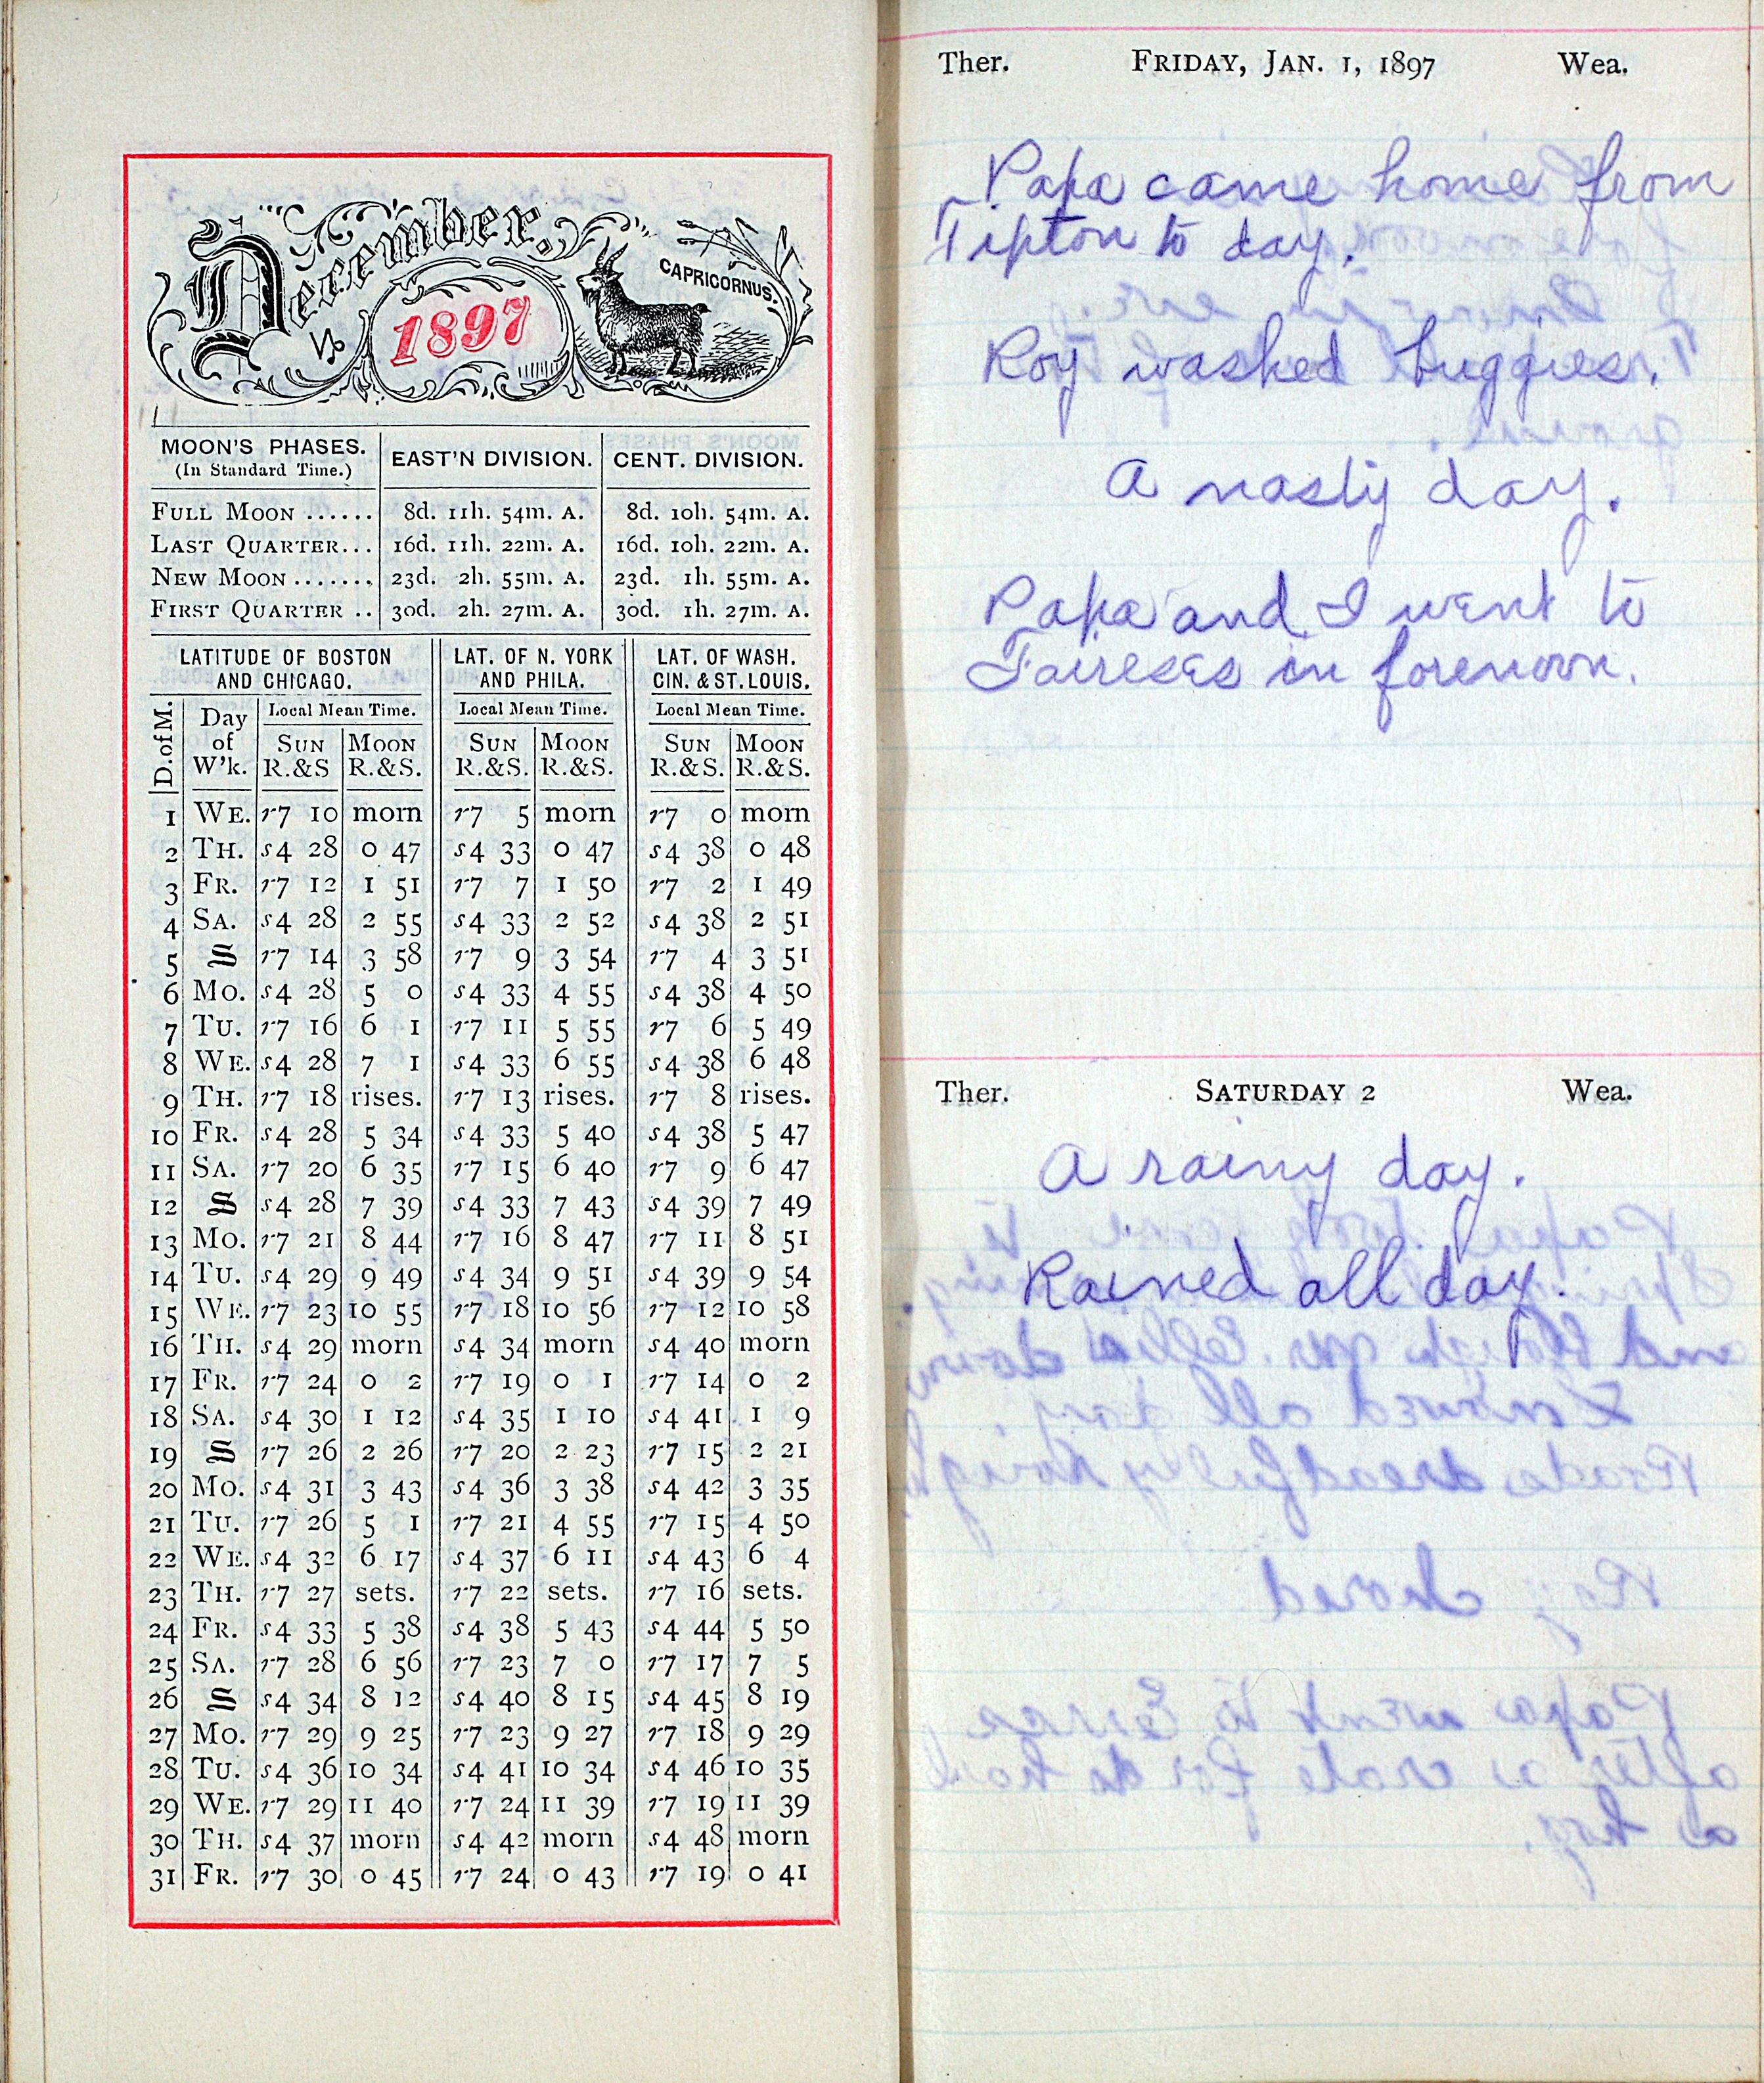 December.
1897
CAPRICORNUS.
MOON'S PHASES. EAST'N DIVISION. CENT. DIVISION.
(In Standard Time.)
FULL MOON ...... 8d. 11h. 54m. A. 8d. 10h. 54m. A.
LAST QUARTER... 16d. 11h. 22m. A. 16d. 10h. 22m. A.
NEW MOON ....... 23d. 2h. 55m. A. 23d. 1h. 55m. A.
FIRST QUARTER .. 30d. 2h. 27m. A. 30d. 1h. 27m. A.
LATITUDE OF BOSTON LAT. OF N. YORK LAT. OF WASH.
AND CHICAGO. AND PHILA. CIN. & ST. LOUIS.
D. of M. Day of W'k. Local Mean Time. Local Mean Time. Local Mean Time.
SUN MOON SUN MOON SUN MOON
R.&S R.&S. R.&S. R.&S. R.&S. R.&S.
1 WE. r7 10 morn r7 5 morn r7 0 morn
2 TH. s4 28 0 47 s4 33 0 47 s4 38 0 48
3 FR. r7 12 1 51 r7 7 1 50 r7 2 1 49
4 SA. s4 28 2 55 s4 33 2 52 s4 38 2 51
5 S r7 14 3 58 r7 9 3 54 r7 4 3 51
6 MO. s4 28 5 0 s4 33 4 55 s4 38 4 50
7 TU. r7 16 6 1 r7 11 5 55 r7 6 5 49
8 WE. s4 28 7 1 s4 33 6 55 s4 38 6 48
9 TH. r7 18 rises. r7 13 rises. r7 8 rises.
10 FR. s4 28 5 34 s4 33 5 40 s4 38 5 47
11 SA. r7 20 6 35 r7 15 6 40 r7 9 6 47
12 S s4 28 7 39 s4 33 7 43 s4 39 7 49
13 MO. r7 21 8 44 r7 16 8 47 r7 11 8 51
14 TU. s4 29 9 49 s4 34 9 51 s4 39 9 54
15 WE. r7 23 10 55 r7 18 10 56 r7 12 10 58
16 TH. s4 29 morn s4 34 morn s4 40 morn
17 FR. r7 24 0 2 r7 19 0 1 r7 14 0 2
18 SA. s4 30 1 12 s4 35 1 10 s4 41 1 9
19 S r7 26 2 26 r7 20 2 23 r7 15 2 21
20 MO. s4 31 3 43 s4 36 3 38 s4 42 3 35
21 TU. r7 26 5 1 r7 21 4 55 r7 15 4 50
22 WE. s4 32 6 17 s4 37 6 11 s4 43 6 4
23 TH. r7 27 sets. r7 22 sets. r7 16 sets.
24 FR. s4 33 5 38 s4 38 5 43 s4 44 5 50
25 SA. r7 28 6 56 r7 23 7 0 r7 17 7 5
26 S s4 34 8 12 s4 40 8 15 s4 45 8 19
27 MO. r7 29 9 25 r7 23 9 27 r7 18 9 29
28 TU. s4 36 10 34 s4 41 10 34 s4 46 10 35
29 WE. r7 29 11 40 r7 24 11 39 r7 19 11 39
30 TH. s4 37 morn s4 42 morn s4 48 morn
31 FR. r7 30 0 45 r7 24 0 43 r7 19 0 41
Ther. FRIDAY, JAN. 1, 1897 Wea.
Papa came home from
Tipton to day.
Roy washed buggies.
A nasty day.
Papa and I went to
Faireses in forenoon.
Ther. SATURDAY 2 Wea.
A rainy day.
Rained all day.